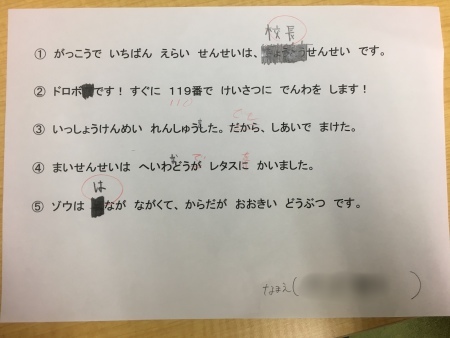 校長
① がっこうで いちばん えらい せんせいは、せんせい です。
② ドロボです！ すぐに 119番で けいさつに でんわを します！
110
③ いっしょうけんめい れんしゅうした。だから、しあいで まけた。
④ まいせんせいは へいわどうが レタスに かいました。
か で を
は
⑤ ゾウは なが ながくて、からだが おおきい どうぶつ です。
なまえ( )